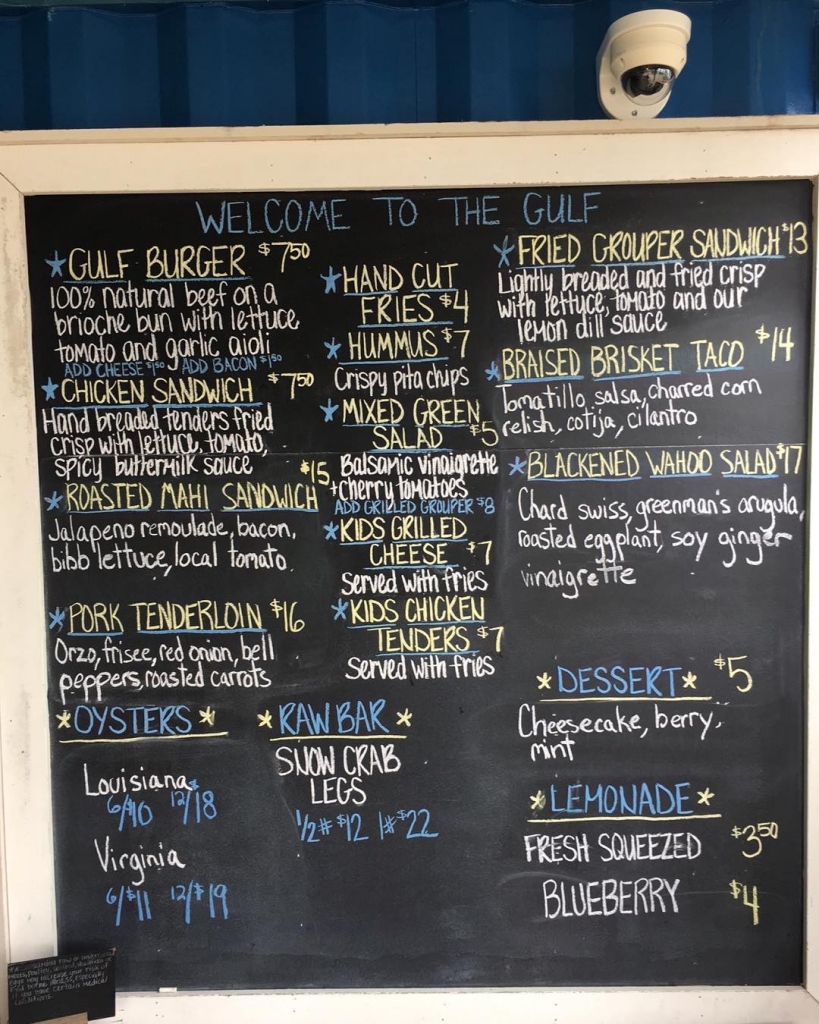 WELCOME TO THE GULF
*GULF BURGER $7.50
100% natural beef on a
brioche bun with lettuce
tomato and garlic aioli
ADD CHEESE $1.50 ADD BACON $1.50
*CHICKEN SANDWICH $7.50
Hand breaded tenders fried
crisp with lettuce, tomato,
spicy buttermilk sauce
*ROASTED MAHI SANDWICH $15
Jalapeno remoulade, bacon,
bibb lettuce, local tomato
*PORK TENDERLOIN $16
Orzo, frisee, red onion, bell
peppers, roasted carrots
*HAND CUT
FRIES $4
*HUMMUS $7
Crispy pita chips
*MIXED GREEN
SALAD $5
Balsamic vinaigrette
+ cherry tomatoes
ADD GRILLED GROUPER $8
*KIDS GRILLED
CHEESE $7
Served with fries
*KIDS CHICKEN
TENDERS $7
Served with fries
*FRIED GROUPER SANDWICH $13
Lightly breaded and fried crisp
with lettuce, tomato and our
lemon dill sauce
*BRAISED BRISKET TACO $14
Tomatillo salsa, charred corn
relish, cotija, cilantro
*BLACKENED WAHOO SALAD $17
Chard swiss, greenman's arugula,
roasted eggplant, soy ginger
vinaigrette
*OYSTERS*
Louisiana
6/$10 12/18
Virginia
6/$11 12/$19
*RAW BAR*
SNOW CRAB
LEGS
1/2# $12 1# $22
*DESSERT* $5
Cheesecake, berry,
mint
*LEMONADE*
FRESH SQUEEZED $3.50
BLUEBERRY $4